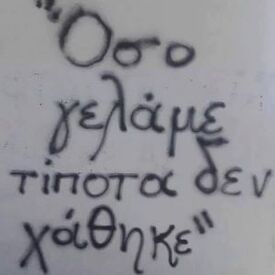 "Όσο
γελάμε
τίποτα δεν
χάθηκε"